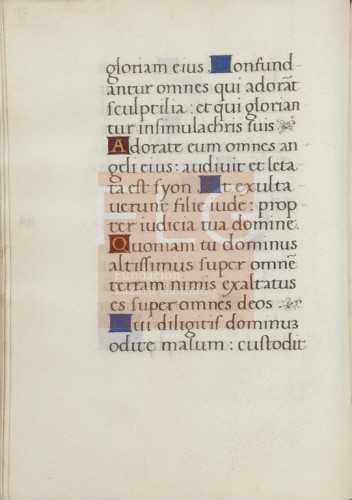 gloriam eius Confund
antur omnes qui adorāt
sculptilia : et qui glorian
tur in simulachris suis.
Adorate eum omnes an
geli eius : audiuit et leta
ta est syon Et exulta
uerunt filie iude : prop
ter iudicia tua domine.
Quoniam tu dominus
altissimus super omnē
terram nimis exaltatus
es super omnes deos.
Qui diligitis dominuʒ
odite malum : custodit
FLG
Fundación